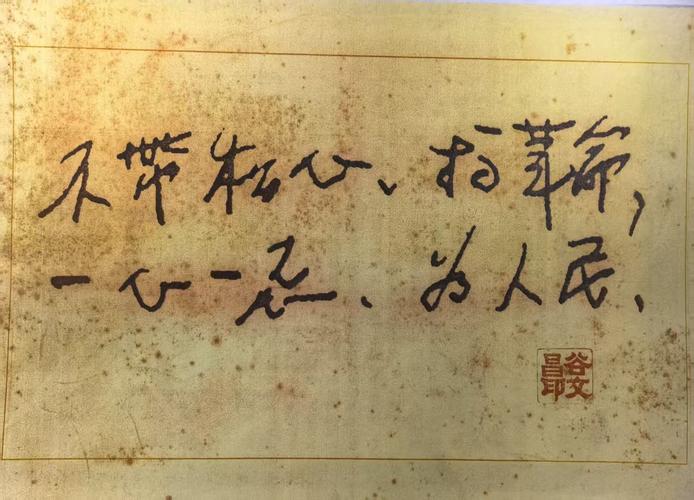 不带私心、搞革命,
一心一意、为人民、
谷文昌印